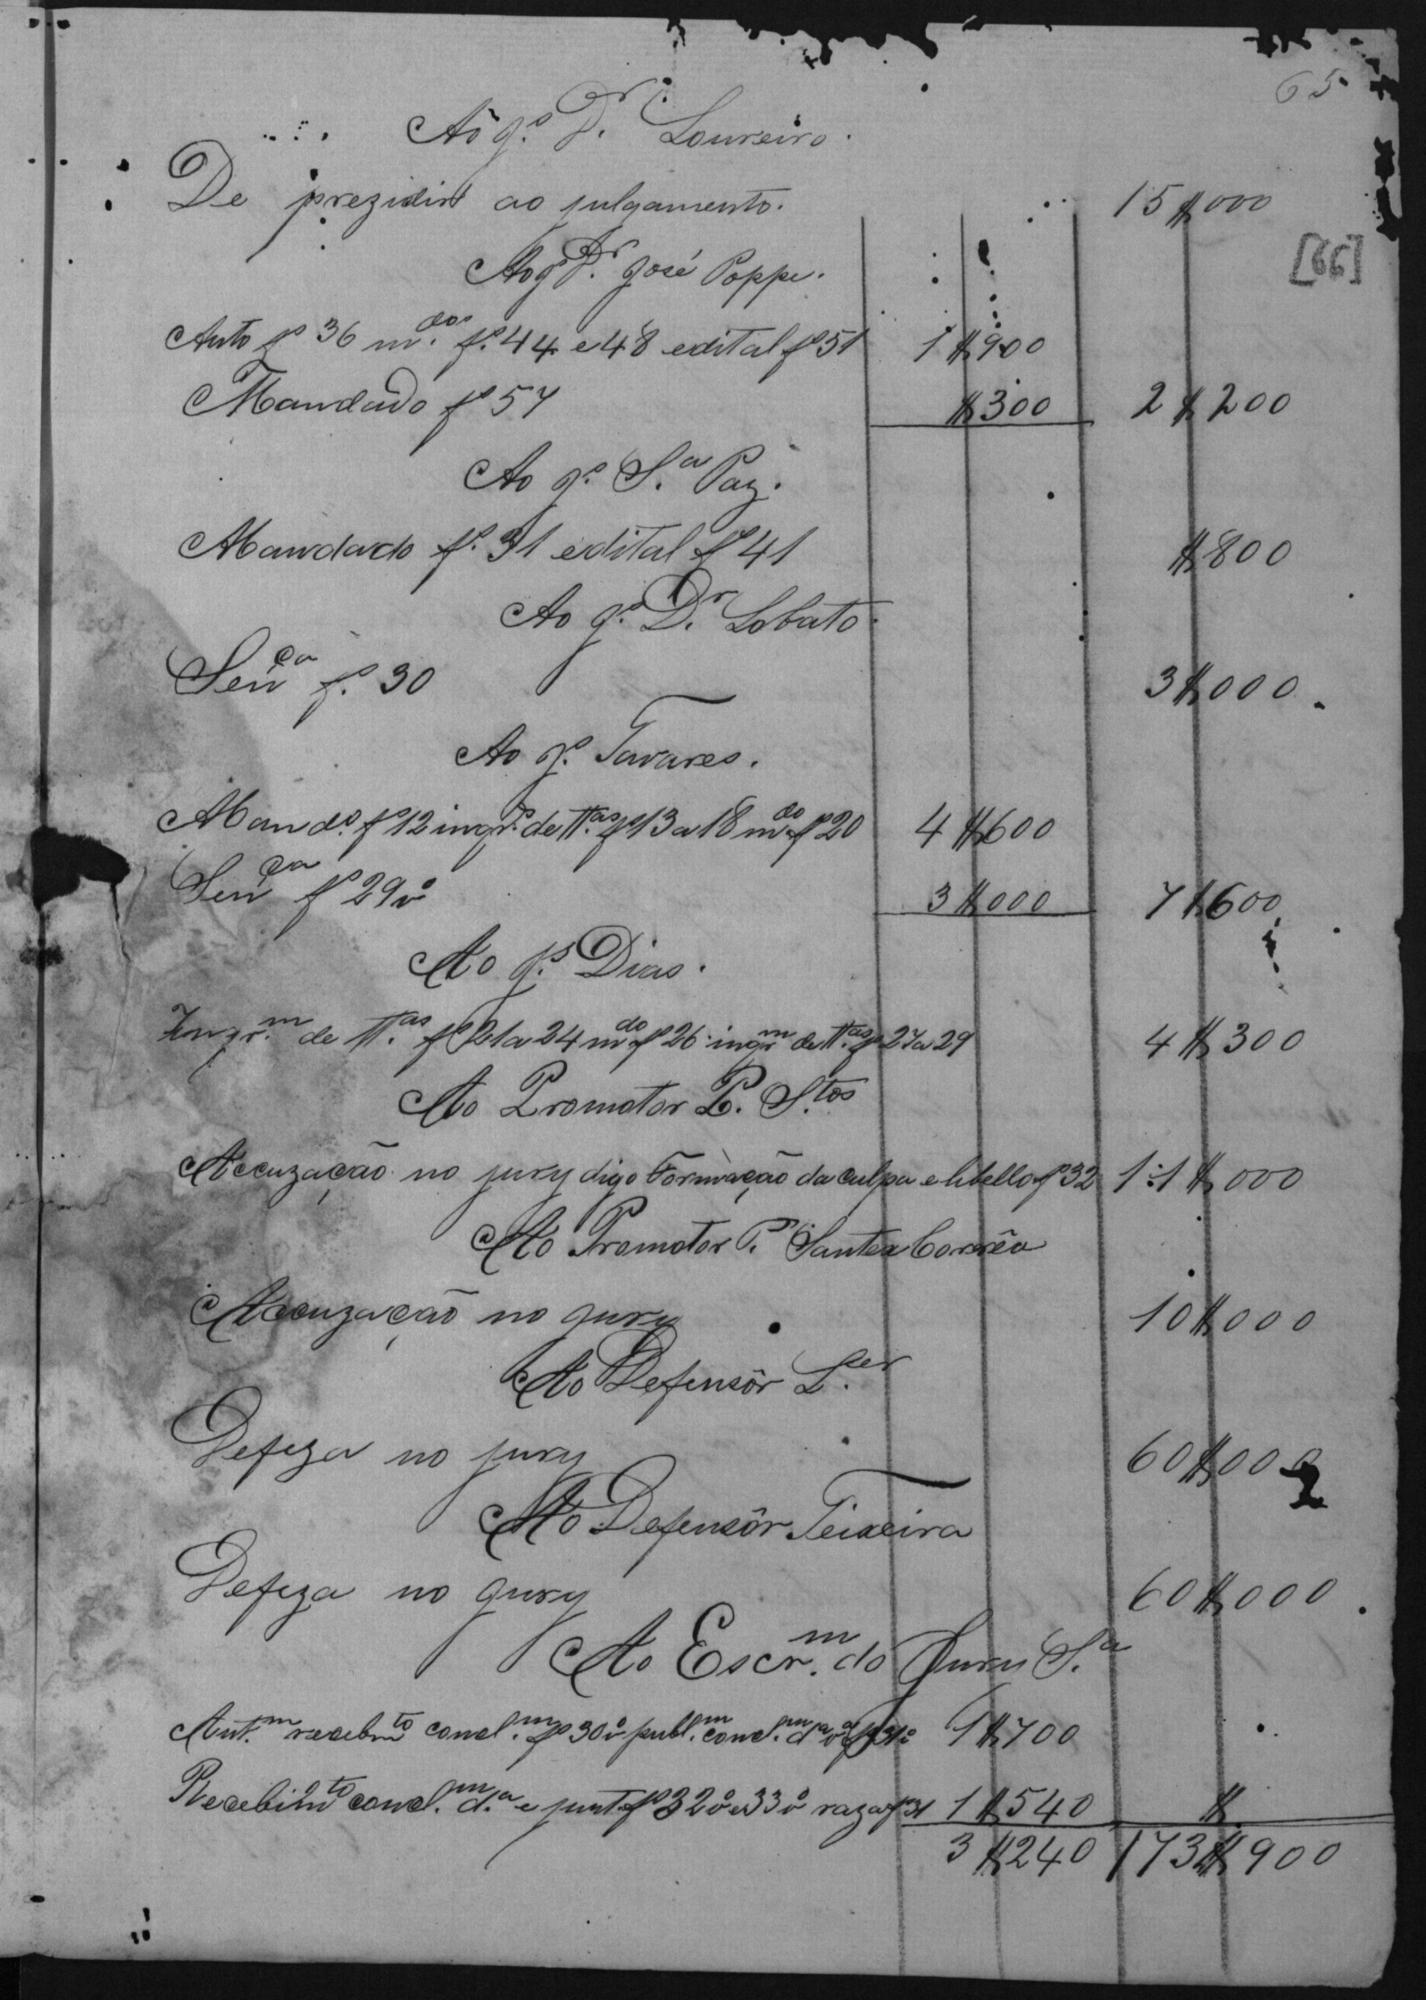 65
Ao J.º Dr. Loureiro.
De prezidir ao julgamento. 15$000
[66]
Ao J.º Dr. José Poppe.
Auto fº 36 m.dos fº 44 e 48 edital fº 51 1$900
Mandado fº 57 $300 2$200
Ao J.º S.ª Paz.
Mandado fº 31 edital fº 41 $800
Ao J.º Dr. Lobato.
Sença fº 30 3$000
Ao J.º Tavares.
Mand.º fº 12 inqr.º de tt.as fº 13 a 18 m.do fº 20 4$600
Sença fº 29vº 3$000 7$600
Ao J.º Dias.
Inqr.m de tt.as fº 21 a 24 m.do fº 26 inqr.m de tt.as fº 27 a 29 4$300
Ao Promotor P. S.tos
Accuzação no jury digo Formação da culpa e libello fº 32 11$000
Ao Promotor P. Santa Corrêa
Accuzação no jury 10$000
Ao Defensôr L.er
Defeza no jury 60$000
Ao Defensôr Teixeira
Defeza no jury 60$000
Ao Escr.m do Jury S.ª
Aut.m recebm.to concl.m fº 30vº publ.m concl.m d.ª fº 31vº 1$700
Recebim.to concl.m d.ª e junt. fº 32vº e 33vº raza fº 31 1$540 $
3$240 173$900